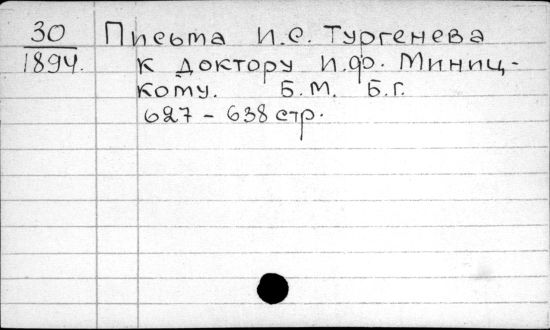 30 Письма И.С. Тургенева
1894. к доктору И.Ф. Миниц-
кому. Б.М. Б.Г.
627 - 638 стр.